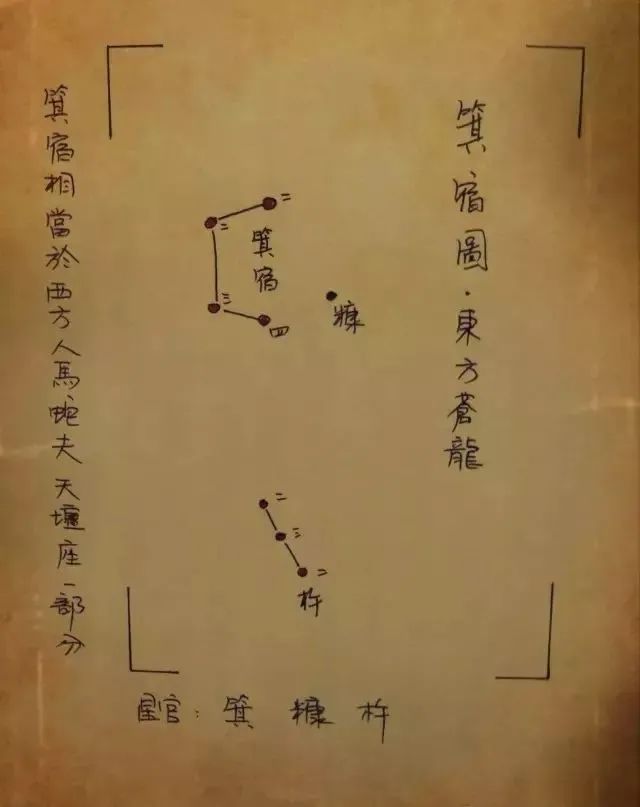 箕宿圖·東方蒼龍
二
二
箕宿
三
四
糠
二
三
二
杵
箕宿相當於西方人馬蛇夫天壇座一部分
星官：箕 糠 杵